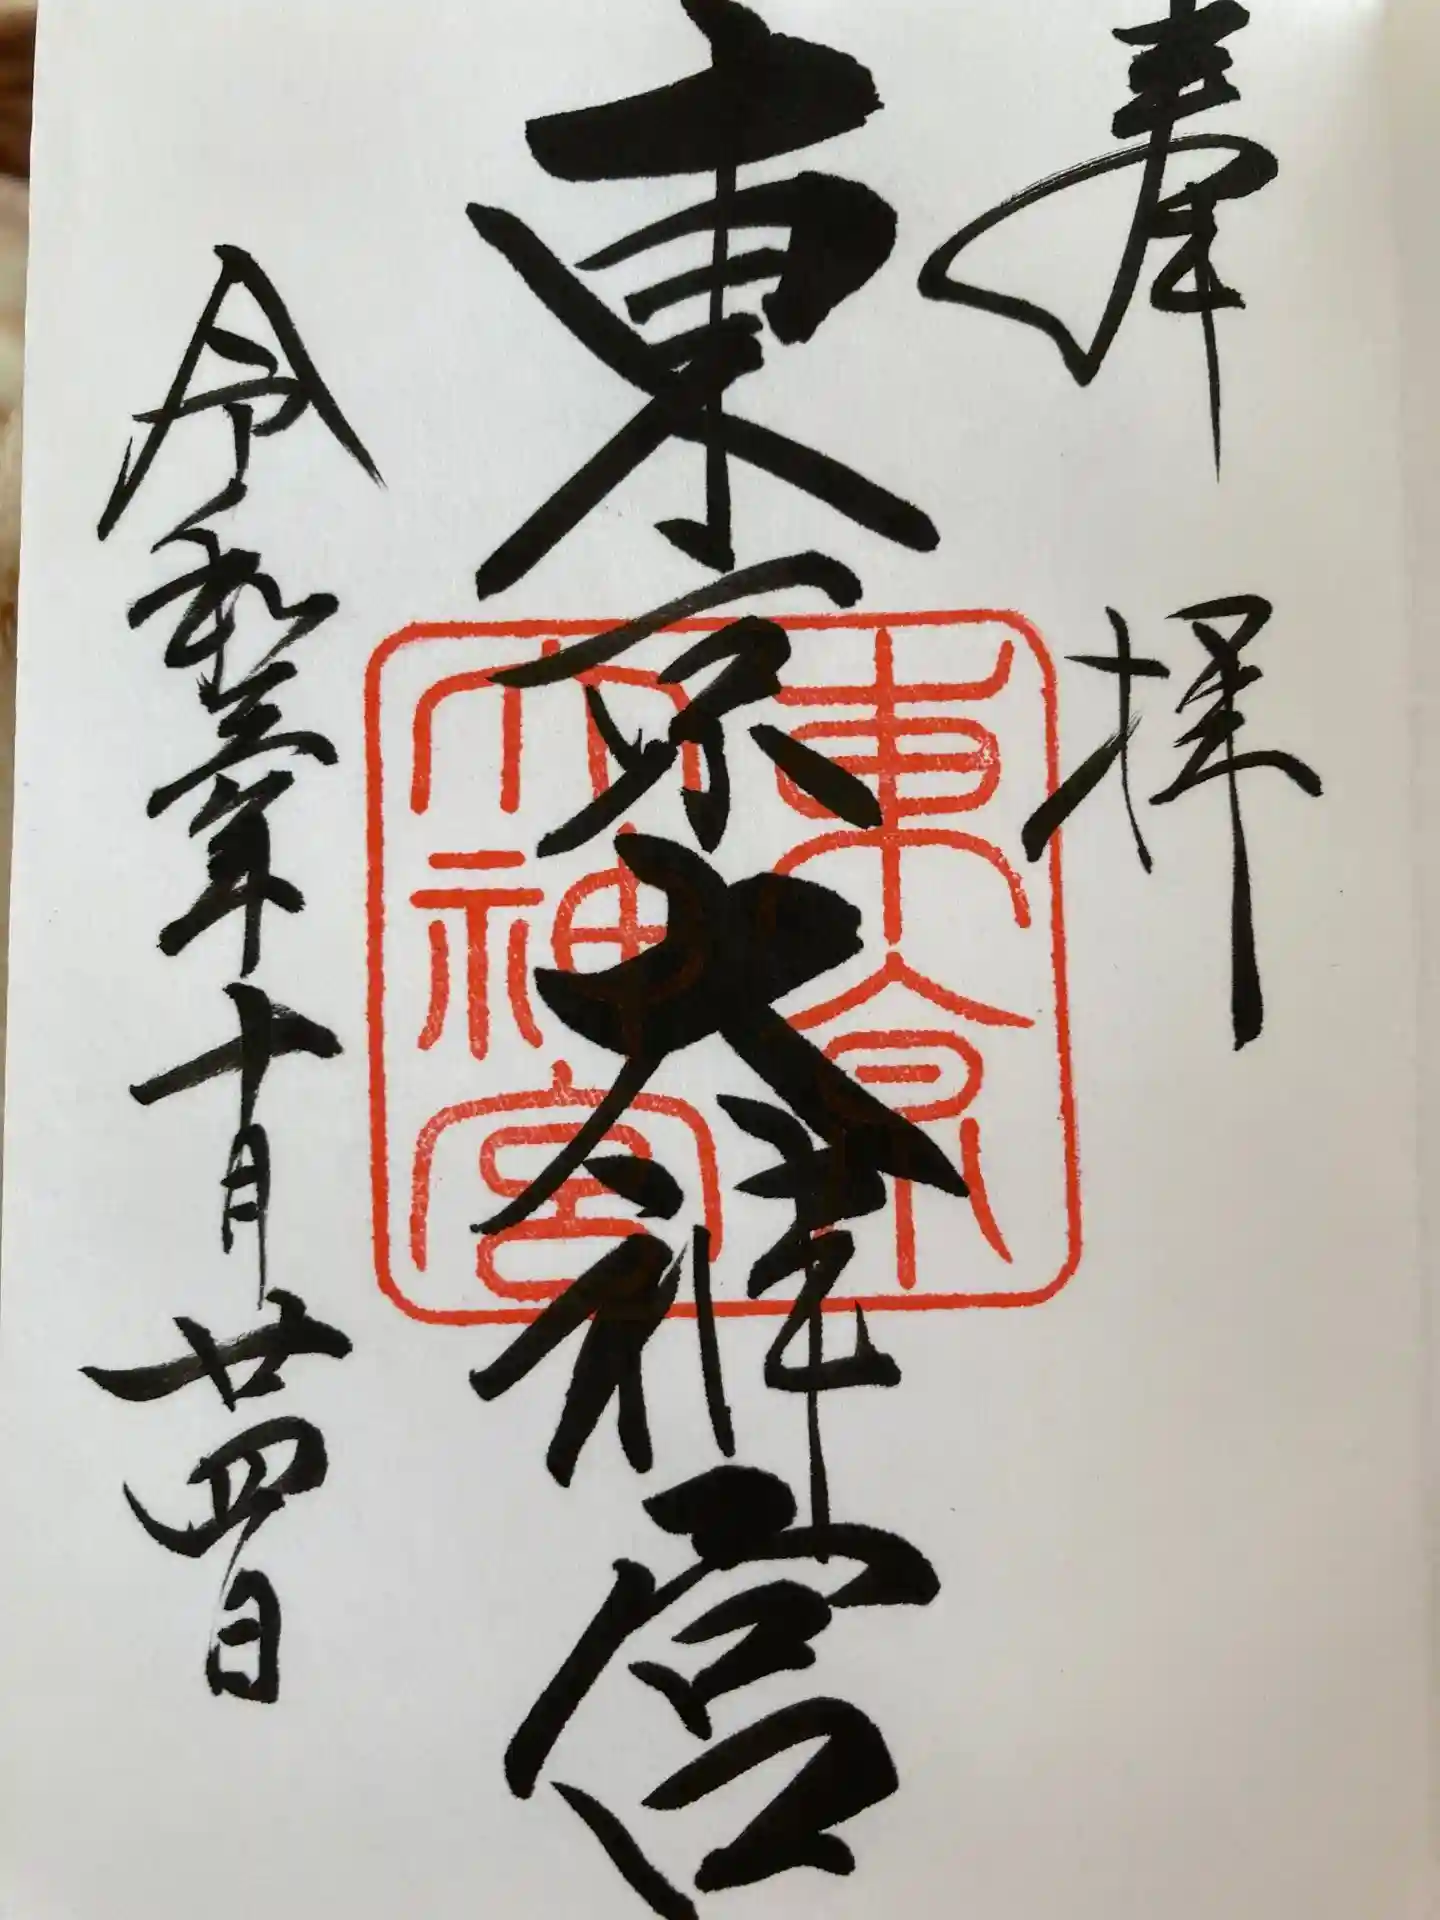 奉拝
東京大神宮
東京大神宮
令和三年十月廿四日